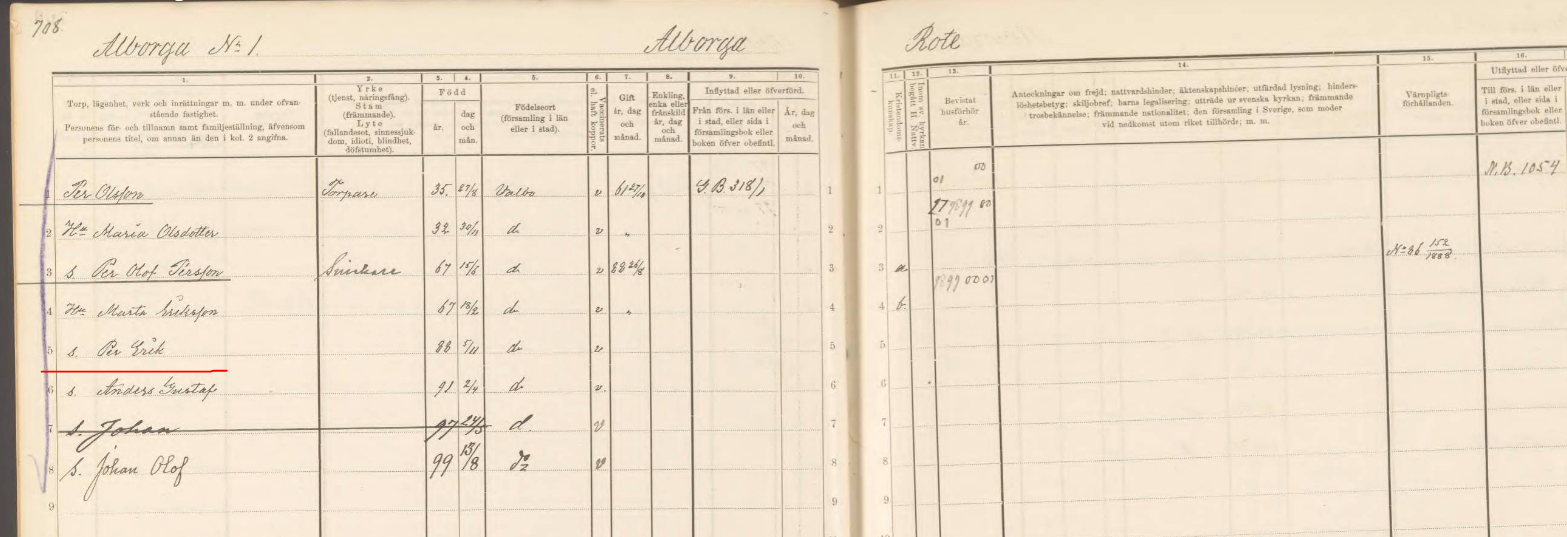 708.
Alborga No 1. Alborga Rote
1. 2. 3. 4. 5. 6. 7. 8. 9. 10. 11. 12. 13. 14. 15. 16.
Torp, lägenhet, verk och inrättningar m. m. under ofvan-
stående fastighet.
Personens för- och tillnamn samt familjeställning, äfvensom
personens titel, om annan än den i kol. 2 angifna.
Yrke
(tjenst, näringsfång).
Stam
(främmande).
Lyte
(fallandesot, sinnessjuk-
dom, idioti, blindhet,
döfstumhet).
Född
år.
dag
och
mån.
Födelseort
(församling i län
eller i stad).
Vaccinerats
el. haft koppor.
Gift
år, dag
och
månad.
Enkling,
enka eller
frånskild
år, dag
och
månad.
Inflyttad eller öfverförd.
Från förs. i län eller
i stad, eller sida i
församlingsbok eller
boken öfver obefintl.
År, dag
och
månad.
Kristendoms-
kunskap.
Bevistat
husförhör
år.
Anteckningar om frejd; nattvardshinder; äktenskapshinder; utfärdad lysning; hinders-
löshetsbetyg; skiljobref; barns legalisering; utträde ur svenska kyrkan; främmande
trosbekännelse; främmande nationalitet; den församling i Sverige, som moder
vid nedkomst utom riket tillhörde; m. m.
Värnpligts-
förhållanden.
Utflyttad eller öfve
Till förs. i län eller
i stad, eller sida i
församlingsbok eller
boken öfver obefintl.
1 Per Olsson Torpare 35. 27/8 Valbo v 61 27/10 G.B. 318/1 1 1 01 00 N.B. 1054
2 Hu Maria Olsdotter 32 30/11 d v „ 2 2 01
3 s. Per Olof Persson 67 15/6 d v 88 26/8 3 3 a No 86 152/1888.
4 Hu Marta Eriksson 67 18/2 d v „ 4 4 b 9899 00 01
5 s. Per Erik 88 5/11 d v 5 5
6 s. Anders Gustaf 91 2/4 d v. 6 6
7 s. Johan 97 24/5 d. v 7 7
8 s. Johan Olof 99 13/8 do v 8 8
9 9 9